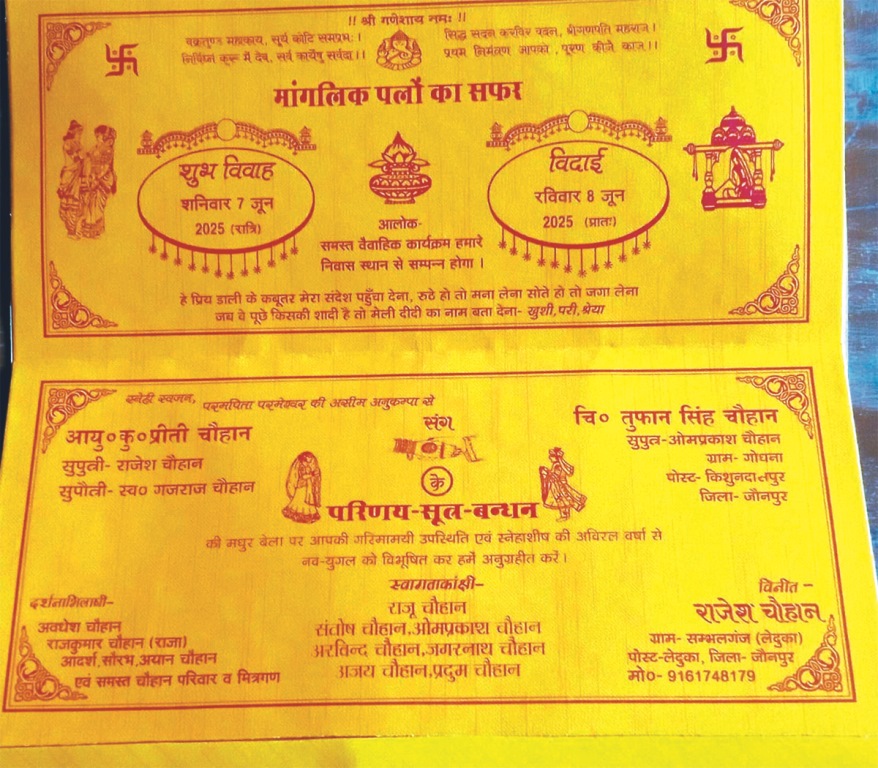 !! श्री गणेशाय नमः !!
वक्रतुण्ड महाकाय, सूर्य कोटि समप्रभः।
निर्विघ्नं कुरू मे देव, सर्व कार्येषु सर्वदा।।
सिद्ध सदन करविर वदन, श्रीगणपति महराज।
प्रथम निमंत्रण आपको, पूरण कीजे काज।।
मांगलिक पलों का सफर
शुभ विवाह
शनिवार 7 जून
2025 (रात्रि)
आलोक-
समस्त वैवाहिक कार्यक्रम हमारे
निवास स्थान से सम्पन्न होगा।
विदाई
रविवार 8 जून
2025 (प्रातः)
हे प्रिय डाली के कबूतर मेरा संदेश पहुँचा देना, रुठे हो तो मना लेना सोते हो तो जगा लेना
जब वे पूछे किसकी शादी है तो मेली दीदी का नाम बता देना- खुशी,परी,श्रेया
स्नेही स्वजन, परमपिता परमेश्वर की असीम अनुकम्पा से
आयु०कु०प्रीती चौहान
सुपुत्री- राजेश चौहान
सुपौत्री- स्व० गजराज चौहान
संग
चि० तुफान सिंह चौहान
सुपुत्र-ओमप्रकाश चौहान
ग्राम- गोधना
पोस्ट- किशुनदासपुर
जिला- जौनपुर
के
परिणय-सूत्र-बन्धन
की मधुर बेला पर आपकी गरिमामयी उपस्थिति एवं स्नेहाशीष की अविरल वर्षा से
नव-युगल को विभूषित कर हमें अनुग्रहीत करें।
दर्शनाभिलाषी-
अवधेश चौहान
राजकुमार चौहान (राजा)
आदर्श,सौरभ,अयान चौहान
एवं समस्त चौहान परिवार व मित्रगण
स्वागताकांक्षी-
राजू चौहान
संतोष चौहान,ओमप्रकाश चौहान
अरविन्द चौहान,जगरनाथ चौहान
अजय चौहान,प्रदुम चौहान
विनीत -
राजेश चौहान
ग्राम- सम्भलगंज (लेदुका)
पोस्ट-लेदुका, जिला- जौनपुर
मो०- 9161748179